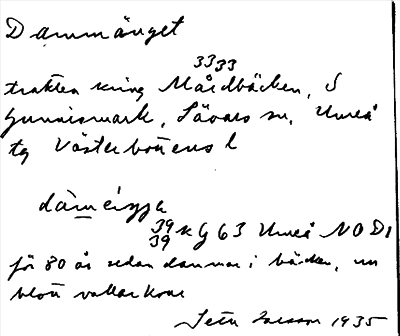 Dammänget
3333
trakten kring Mårdbäcken, S
Gunnismark, Sävars sn, Umeå
tg Västerbottens l
39 kg 63 Umeå NO D1
39
för 80 år sedan dammar i bäcken, nu
blott vallar kvar
1935